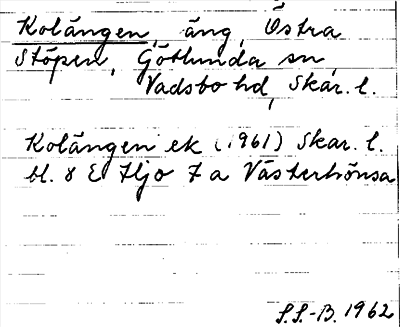 Kolängen, äng, Östra
Stöpen, Götlunda sn,
Vadsbo hd, Skar. l.
Kolängen ek (1961) Skar. l.
bl. 8 E Hjo 7 a Västerhönsa
S.S.-B. 1962